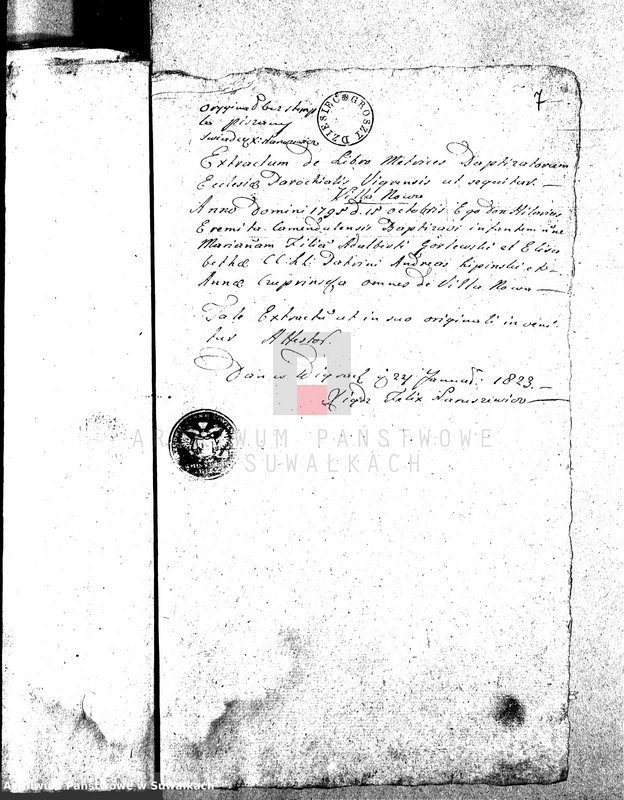 7
oryginał bez stemp
la pisany
świadczy X: Naruszewicz
DZIESIĘC GROSZY
Extractum de Libro Metrices Baptizatorum
Ecclesiæ Parochialis Vigrensis ut sequitur. —
Villa Nowa
Anno Domini 1798 d. 18 octobris Ego Don Hilarius
Eremita Camendulensis Baptizavi infantem nne
Mariannam Filia Adalberti Gorlewski et Elisa
bethæ C: L: Patrini Andreas Lipinski et
Annæ omnes de Villa Nowa —
Tale Extractũ ut in suo originali inveni
tur Attestor.
Dan w Wigrach d 24 Januar: 1823. —
Xiądz Felix Naruszewicz —
ARCHIWUM PAŃSTWOWE
W SUWAŁKACH
Archiwum Państwowe w Suwałkach